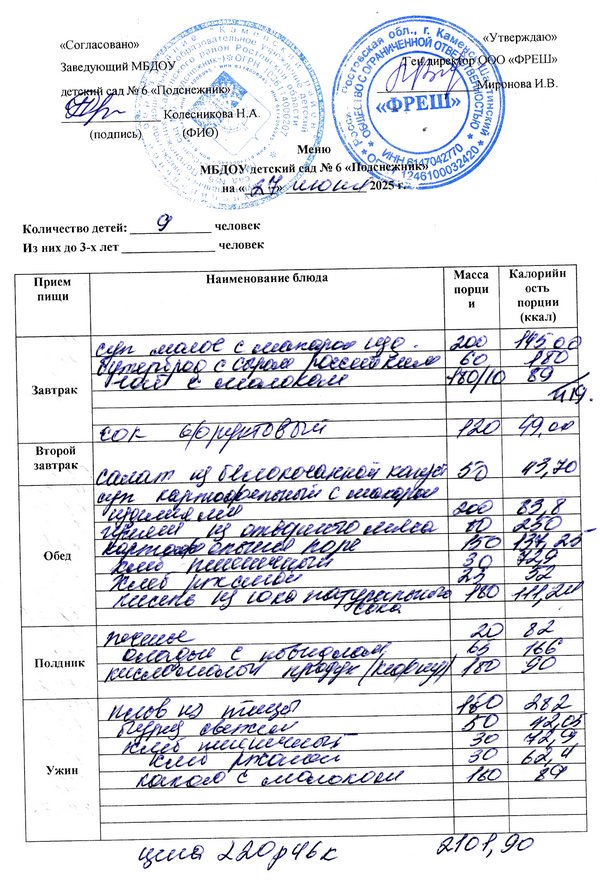 «Согласовано»
«Утверждаю»
Заведующий МБДОУ
Ген.директор ООО «ФРЕШ»
детский сад № 6 «Подснежник»
Миронова И.В.
Колесникова Н.А.
(подпись) (ФИО)
«ФРЕШ»
ОБЩЕСТВО С ОГРАНИЧЕННОЙ ОТВЕТСТВЕННОСТЬЮ
ИНН 6147042770
ОГРН 1246100032420
Меню
МБДОУ детский сад № 6 «Подснежник»
на «27» июня 2025 г.
Количество детей: 9 человек
Из них до 3-х лет человек
Прием пищи Наименование блюда Масса порции Калорийность порции (ккал)
Завтрак
суп молоч с макарон изд. 200 145,00
бутерброд с сыром российским 60 180
чай с молоком 180/10 89
419.
сок фруктовый 120 49,00
Второй завтрак
салат из белокочанной капуст 50 43,70
Обед
суп картофельный с макарон
изделиями 200 83,8
из отварного мяса 80 250
картофельное пюре 150 137,25
хлеб пшеничный 30 72,9
хлеб ржаной 25 52
кисель из сока натурального 180 111,24
сока
Полдник
печенье 20 82
оладьи с повидлом 65 166
кисломолоч продук (кефир) 180 90
Ужин
плов из птицы 160 282
огурец свежий 50 42,05
хлеб пшеничный 30 72,9
хлеб ржаной 30 62,4
какао с молоком 180 89
цена 220р46к 2101,90